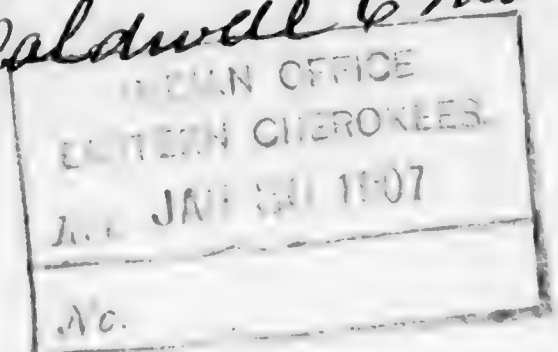 Caldwell
INDIAN OFFICE
EASTERN CHEROKEES.
JAN 1907
No.